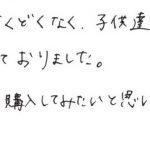 くどくなく、子供達
ておりました。
購入してみたいと思い